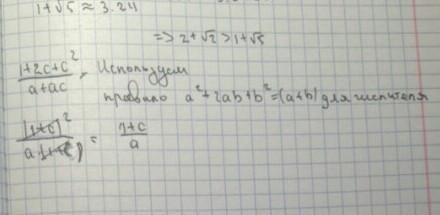 1+√5 ≈ 3.24
=> 2+√2 > 1+√5
(1+2c+c²)/(a+ac) = Используем
правило a²+2ab+b²=(a+b) для числителя
(1+c)²/(a(1+c)) = (1+c)/a